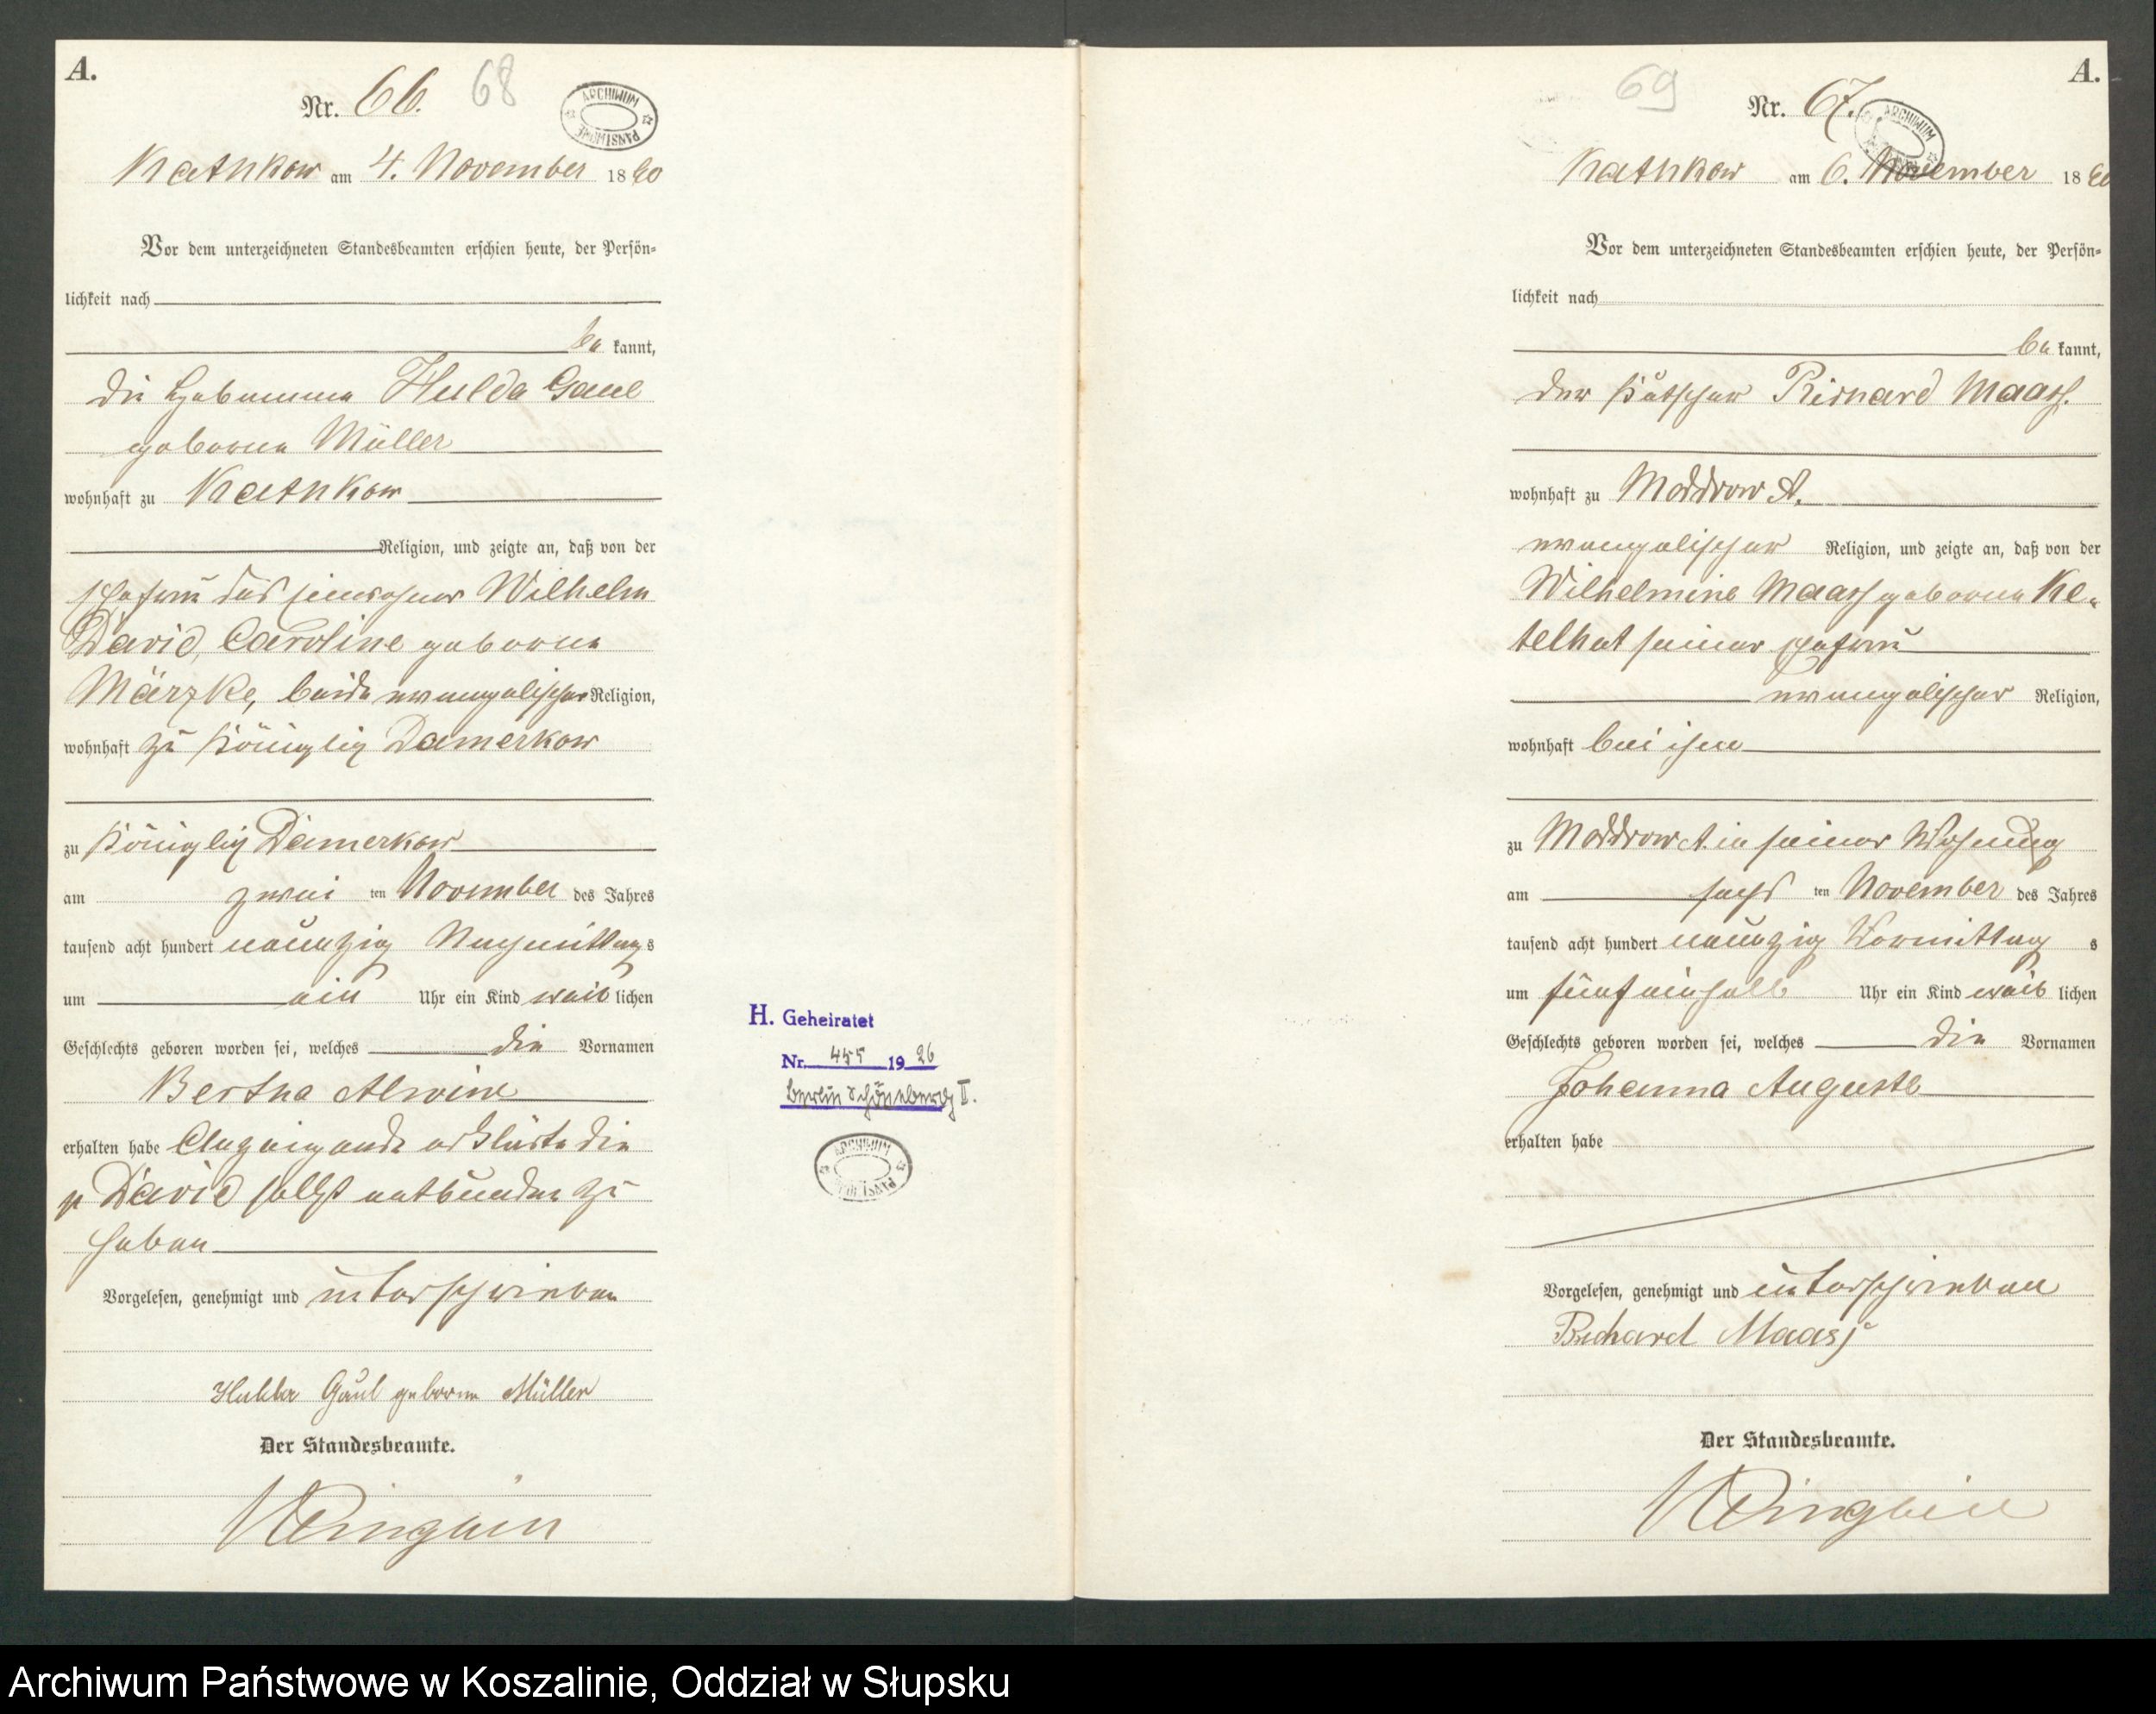 A.
Nr. 66. 68
ARCHIWUM PAŃSTWOWE
Kathkow am 4. November 1890
Vor dem unterzeichneten Standesbeamten erschien heute, der Persön-
lichkeit nach
be kannt,
die Hebamme Hulda Gaul
geborene Müller
wohnhaft zu Kathkow
Religion, und zeigte an, daß von der
Ehefrau des Einwohner Wilhelm
David, Caroline geborene
Märzke, beide evangelischer Religion,
wohnhaft zu Königlich Damerkow
zu Königlich Damerkow
am zwei ten November des Jahres
tausend acht hundert neunzig Nachmittags
um ein Uhr ein Kind weib lichen
Geschlechts geboren worden sei, welches die Vornamen
Bertha Alwine
erhalten habe Anzeigende erklärte die
p David selbst entbunden zu
haben
Vorgelesen, genehmigt und unterschrieben
Hulda Gaul geborene Müller
Der Standesbeamte.
H. Geheiratet
Nr. 455 1926
Berlin Schöneberg II.
ARCHIWUM PAŃSTWOWE
A.
69 Nr. 67.
ARCHIWUM
Kathkow am 6. November 1890
Vor dem unterzeichneten Standesbeamten erschien heute, der Persön-
lichkeit nach
be kannt,
der Käthner Richard Maass.
wohnhaft zu Moddrow A.
evangelischer Religion, und zeigte an, daß von der
Wilhelmine Maass geborene Ke-
telhut seiner Ehefrau
evangelischer Religion,
wohnhaft bei ihm
zu Moddrow A. in seiner Wohnung
am sechs ten November des Jahres
tausend acht hundert neunzig Vormittag s
um fünfeinhalb Uhr ein Kind weib lichen
Geschlechts geboren worden sei, welches die Vornamen
Johanna Auguste
erhalten habe
Vorgelesen, genehmigt und unterschrieben
Richard Maass
Der Standesbeamte.
Archiwum Państwowe w Koszalinie, Oddział w Słupsku